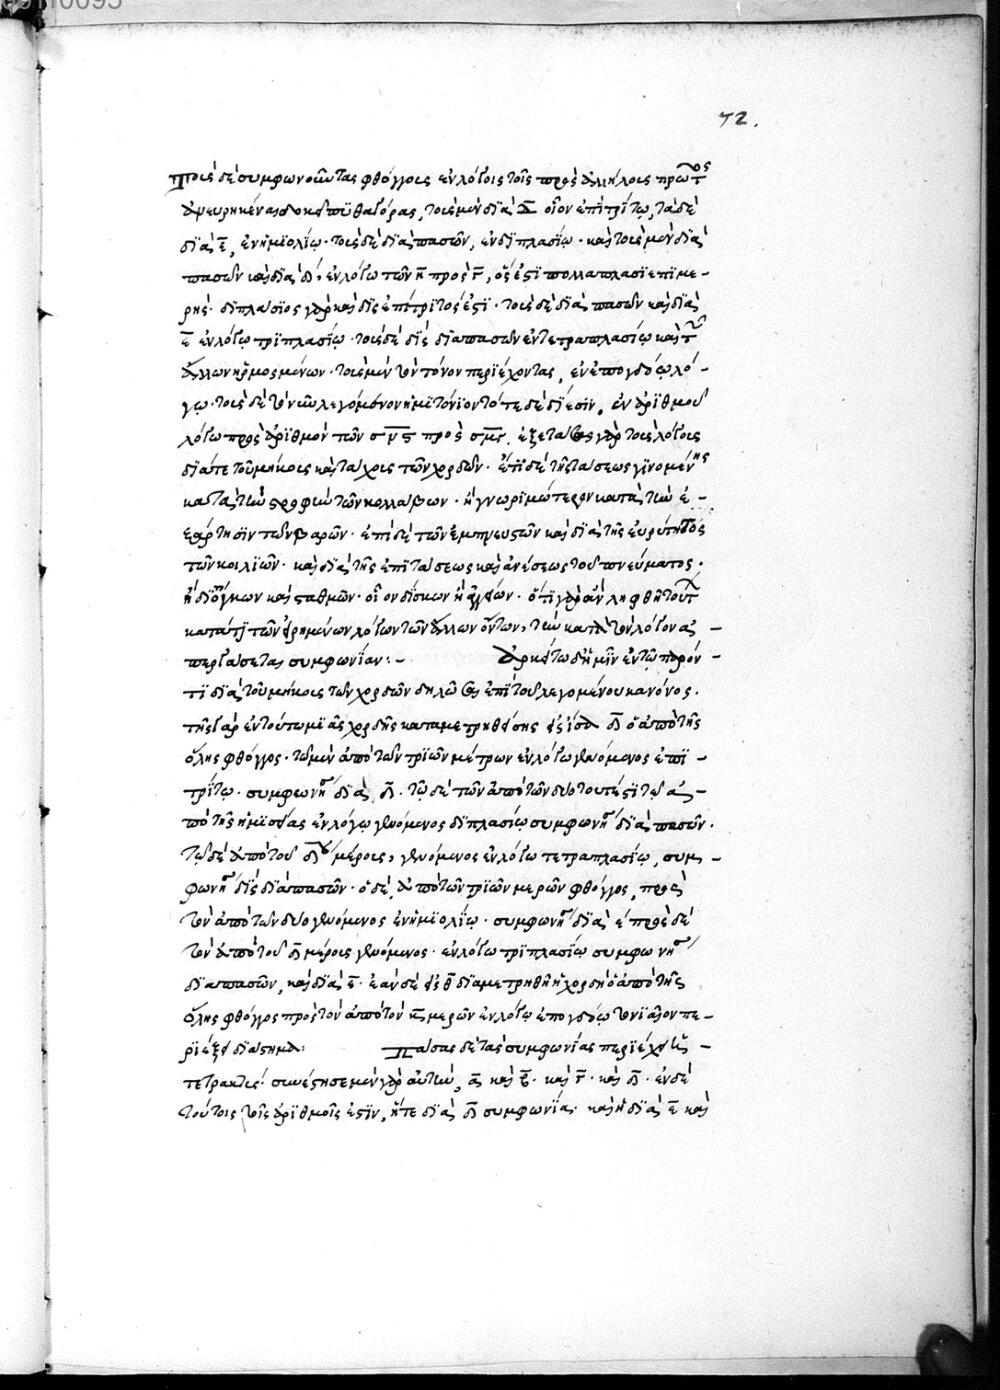 72.
Τοὺς δὲ συμφωνοῦντας φθόγγους ἐν λόγοις τοῖς πρὸς ἀλλήλους πρῶτος
ἀνευρηκέναι δοκεῖ πυθαγόρας, τοὺς μὲν διὰ δ̄ οἷον ἐπιτρίτῳ, τὰ δὲ
διὰ ε̄, ἐν ἡμιολίῳ· τοὺς δὲ διὰ πασῶν, ἐν διπλασίῳ· καὶ τοὺς μὲν διὰ
πασῶν καὶ διὰ δ̄, ἐν λόγῳ τῶν η̄ πρὸς γ̄, ὅς ἐστι πολλαπλασιεπιμε-
ρής· διπλάσιος γὰρ καὶ δὶς ἐπίτριτός ἐστι· τοὺς δὲ διὰ πασῶν καὶ διὰ
ε̄ ἐν λόγῳ τριπλασίῳ· τοὺς δὲ δὶς διὰ πασῶν ἐν τετραπλασίῳ καὶ τῶν
ἄλλων ἡρμοσμένων· τοὺς μὲν τὸν τόνον περιέχοντας, ἐν ἐπογδόῳ λό-
γῳ· τοὺς δὲ τὸ νῦν λεγόμενον ἡμιτόνιον τότε δὲ δίεσιν, ἐν ἀριθμοῦ
λόγῳ πρὸς ἀριθμὸν τῶν σν̄ς̄ πρὸς σμ̄γ̄. ἐξετάσας γὰρ τοὺς λόγους
διά τε τοῦ μήκους καὶ πάχους τῶν χορδῶν· ἔτι δὲ τῆς τάσεως γινομένης
κατὰ τὴν στροφὴν τῶν κολλάβων· ἢ γνωριμώτερον κατὰ τὴν ἐ-
ξάρτησιν τῶν βαρῶν· ἐπὶ δὲ τῶν ἐμπνευστῶν καὶ διὰ τῆς εὐρύτητος
τῶν κοιλιῶν· καὶ διὰ τῆς ἐπιτάσεως καὶ ἀνέσεως τοῦ πνεύματος·
ἢ δι' ὄγκων καὶ σταθμῶν· οἷον δίσκων ἢ ἀγγείων· ὅτι γὰρ ἂν ληφθῇ τούτων
κατά τι τῶν εἰρημένων λόγων τῶν ἄλλων ὄντων, τὴν κατὰ τὸν λόγον ἀ-
περγάσεται συμφωνίαν:- Ἀρκείτω δ' ἡμῖν ἐν τῷ παρόν-
τι διὰ τοῦ μήκους τῶν χορδῶν δηλῶσαι ἐπὶ τοῦ λεγομένου κανόνος.
τῆς γὰρ ἐν τούτῳ μιᾶς χορδῆς καταμετρηθείσης εἰς ἴσα δ̄ ὁ ἀπὸ τῆς
ὅλης φθόγγος· τῷ μὲν ἀπὸ τῶν τριῶν μέτρων ἐν λόγῳ γενόμενος ἐπι-
τρίτῳ· συμφωνήσει διὰ δ̄. τῷ δὲ τῶν ἀπὸ τῶν δύο τουτέστι τῷ ἀ-
πὸ τῆς ἡμισείας ἐν λόγῳ γενόμενος διπλασίῳ συμφωνήσει διὰ πασῶν.
τῷ δὲ ἀπὸ τοῦ δ̄ου μέρους, γενόμενος ἐν λόγῳ τετραπλασίῳ, συμ-
φωνήσει δὶς διὰ πασῶν· ὁ δὲ ἀπὸ τῶν τριῶν μερῶν φθόγγος, πρὸς
τὸν ἀπὸ τῶν δύο γενόμενος ἐν ἡμιολίῳ· συμφωνήσει διὰ ε̄ πρὸς δὲ
τὸν ἀπὸ τοῦ δ̄ μέρους γενόμενος· ἐν λόγῳ τριπλασίῳ συμφωνήσει
διαπασῶν, καὶ διὰ ε̄· ἐὰν δὲ εἰς θ̄ διαμετρηθῇ ἡ χορδὴ ὁ ἀπὸ τῆς
ὅλης φθόγγος πρὸς τὸν ἀπὸ τῶν η̄ μερῶν ἐν λόγῳ ἐπογδόῳ τονιαῖον πε-
ριέξει διάστημα: Πάσας δὲ τὰς συμφωνίας περιέχει ἡ
τετρακτύς· συνέστησε μὲν γὰρ αὐτὴν, ᾱ καὶ β̄· καὶ γ̄· καὶ δ̄· ἐν δὲ
τούτοις τοῖς ἀριθμοῖς ἐστὶν, ἥ τε διὰ δ̄ συμφωνία· καὶ ἡ διὰ ε̄ καὶ